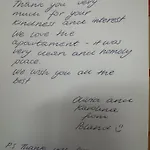 Thank you very
much for your
kindness and interest
We love the
apartament - it was
very warm and homely
place.
We wish you all the
best
and
Karolina
from
Poland